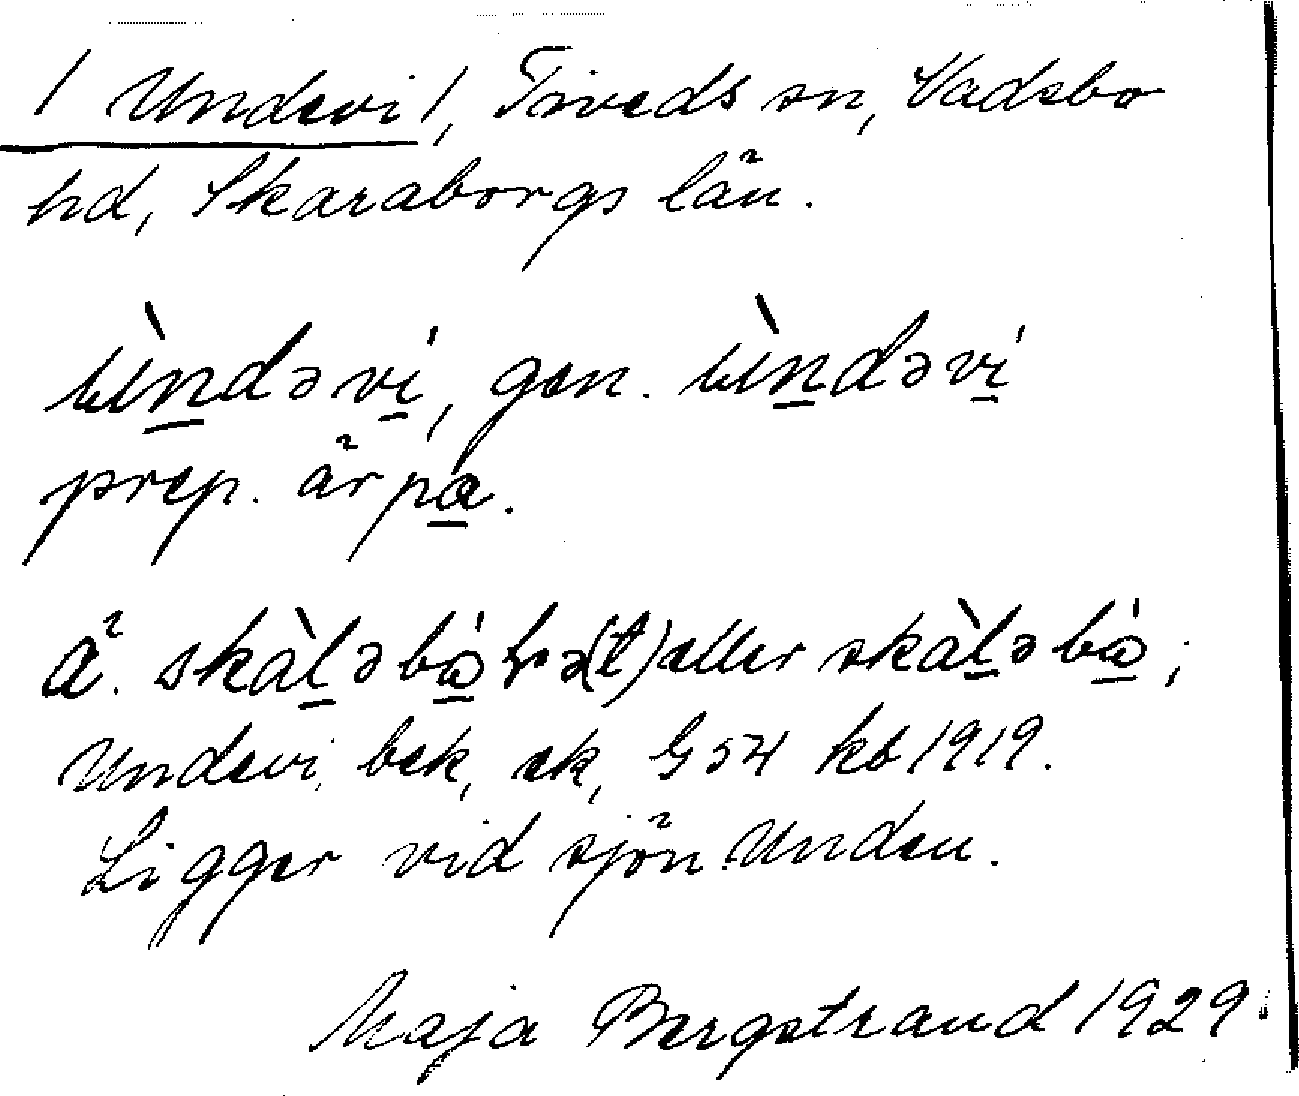 / Undevi /, Tiveds sn, Vadsbo
hd, Skaraborgs län.
ùndəvi, gen. ùndəvi
prep. är pa.
Ä. skàləbá eller skàləbá;
Undevi, bek, ek, G54 kb 1919.
Ligger vid sjön Unden.
Maja Bergstrand 1929.